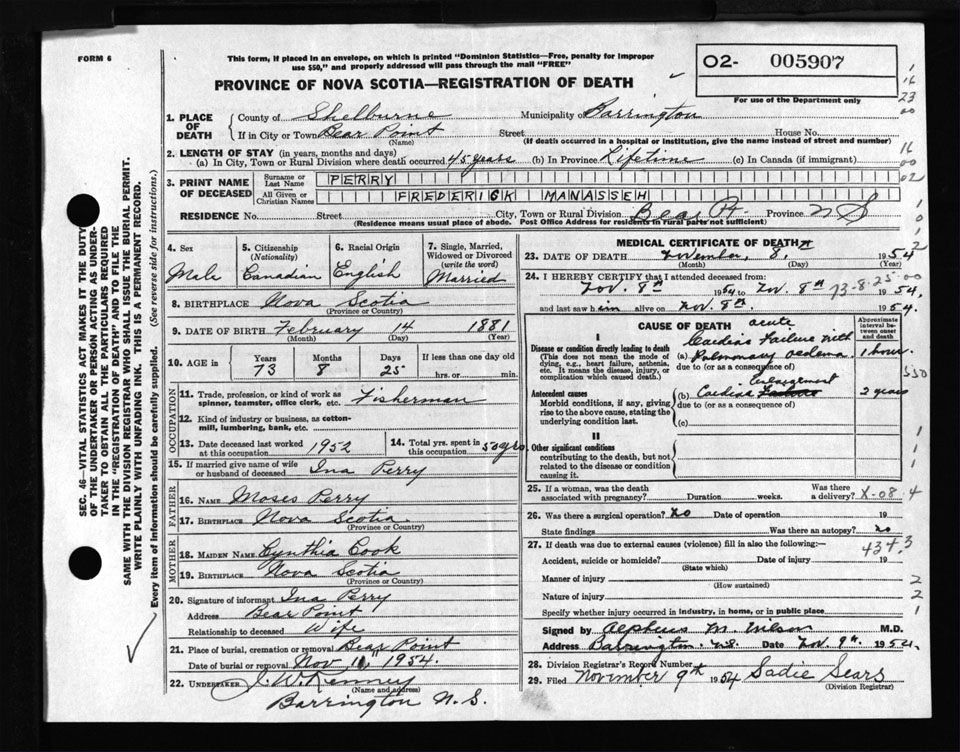 FORM 6
This form, if placed in an envelope, on which is printed "Dominion Statistics—Free, penalty for improper
use $50," and properly addressed will pass through the mail "FREE"
PROVINCE OF NOVA SCOTIA—REGISTRATION OF DEATH
O2- 005907
For use of the Department only
1. PLACE OF DEATH
County of Shelburne Municipality of Barrington
If in City or Town Bear Point Street House No.
(Name) (If death occurred in a hospital or institution, give the name instead of street and number)
2. LENGTH OF STAY (in years, months and days)
(a) In City, Town or Rural Division where death occurred 45 years (b) In Province Lifetime (c) In Canada (if immigrant)
3. PRINT NAME OF DECEASED
Surname or Last Name PERRY
All Given or Christian Names FREDERICK MANASSEH
RESIDENCE No. Street City, Town or Rural Division Bear Pt. Province N S
(Residence means usual place of abode. Post Office Address for residents in rural parts not sufficient)
4. Sex Male
5. Citizenship (Nationality) Canadian
6. Racial Origin English
7. Single, Married, Widowed or Divorced (write the word) Married
8. BIRTHPLACE Nova Scotia
(Province or Country)
9. DATE OF BIRTH February 14 1881
(Month) (Day) (Year)
10. AGE in Years 73 Months 8 Days 25 If less than one day old
hrs. or min.
OCCUPATION
11. Trade, profession, or kind of work as spinner, teamster, office clerk, etc. Fisherman
12. Kind of industry or business, as cotton-mill, lumbering, bank, etc.
13. Date deceased last worked at this occupation 1952
14. Total yrs. spent in this occupation 50 yrs
15. If married give name of wife or husband of deceased Ina Perry
FATHER
16. NAME Moses Perry
17. BIRTHPLACE Nova Scotia
(Province or Country)
MOTHER
18. MAIDEN NAME Cynthia Cook
19. BIRTHPLACE Nova Scotia
(Province or Country)
20. Signature of informant Ina Perry
Address Bear Point
Relationship to deceased Wife
21. Place of burial, cremation or removal Bear Point
Date of burial or removal Nov 11" 1954.
22. UNDERTAKER J. W. Kenney
(Name and address)
Barrington N. S.
MEDICAL CERTIFICATE OF DEATH
23. DATE OF DEATH November, 8, 1954
(Month) (Day) (Year)
24. I HEREBY CERTIFY that I attended deceased from:
Nov. 8th 1954 to Nov. 8th 1954,
73-8-25
and last saw him alive on Nov. 8th 1954.
CAUSE OF DEATH
Approximate interval between onset and death
I
Disease or condition directly leading to death
(This does not mean the mode of dying, e.g. heart failure, asthenia, etc. It means the disease, injury, or complication which caused death.
acute
Cardiac Failure with
(a) Pulmonary oedema 1 hour.
due to (or as a consequence of)
Antecedent causes
Morbid conditions, if any, giving rise to the above cause, stating the underlying condition last.
enlargement
(b) Cardiac 2 years
due to (or as a consequence of)
(c)
II
Other significant conditions
contributing to the death, but not related to the disease or condition causing it.
25. If a woman, was the death associated with pregnancy? Duration weeks. Was there a delivery?
X-08
26. Was there a surgical operation? No Date of operation 19
State findings Was there an autopsy? no
27. If death was due to external causes (violence) fill in also the following:—
434.3
Accident, suicide or homicide? Date of injury 19
(State which)
Manner of injury
(How sustained)
Nature of injury
Specify whether injury occurred in industry, in home, or in public place
Signed by Alpheus M. Wilson M.D.
Address Barrington N.S. Date Nov. 9th. 1954.
28. Division Registrar's Record Number
29. Filed November 9th 1954 Sadie Sears
(Division Registrar)
SEC. 46—VITAL STATISTICS ACT MAKES IT THE DUTY
OF THE UNDERTAKER OR PERSON ACTING AS UNDER-
TAKER TO OBTAIN ALL THE PARTICULARS REQUIRED
IN THE "REGISTRATION OF DEATH" AND TO FILE THE
SAME WITH THE DIVISION REGISTRAR WHO SHALL ISSUE THE BURIAL PERMIT.
WRITE PLAINLY WITH UNFADING INK. THIS IS A PERMANENT RECORD.
Every item of information should be carefully supplied. (See reverse side for instructions.)